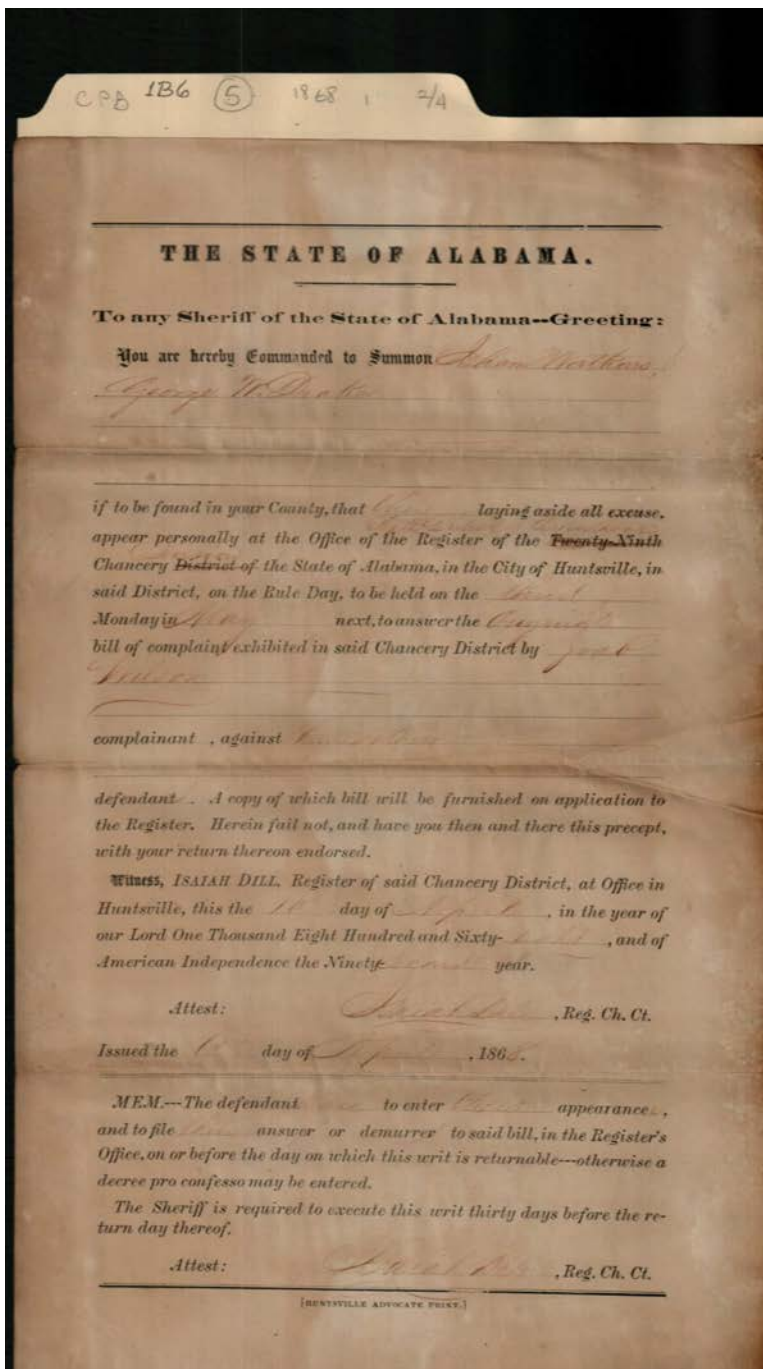 CPB 1B6 5 1868 1 2/4
THE STATE OF ALABAMA.
To any Sheriff of the State of Alabama--Greeting:
You are hereby Commanded to Summon
George W. Drake
if to be found in your County, that they laying aside all excuse,
appear personally at the Office of the Register of the Twenty-Ninth
Chancery District of the State of Alabama, in the City of Huntsville, in
said District, on the Rule Day, to be held on the
Monday in May next, to answer the Original
bill of complaint exhibited in said Chancery District by
complainant , against
defendant . A copy of which bill will be furnished on application to
the Register. Herein fail not, and have you then and there this precept,
with your return thereon endorsed.
Witness, ISAIAH DILL, Register of said Chancery District, at Office in
Huntsville, this the day of April , in the year of
our Lord One Thousand Eight Hundred and Sixty- eight , and of
American Independence the Ninety- second year.
Attest: Isaiah Dill , Reg. Ch. Ct.
Issued the day of April , 1868.
MEM.---The defendant are to enter their appearance ,
and to file answer or demurrer to said bill, in the Register's
Office, on or before the day on which this writ is returnable---otherwise a
decree pro confesso may be entered.
The Sheriff is required to execute this writ thirty days before the re-
turn day thereof.
Attest: Isaiah Dill , Reg. Ch. Ct.
[HUNTSVILLE ADVOCATE PRINT.]